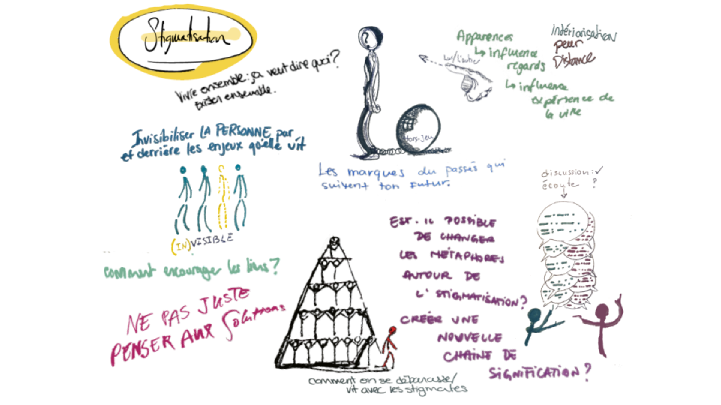 Stigmatisation
Vivre ensemble: ça veut dire quoi?
ensemble.
?
hors-jeu
Les marques du passés qui
suivent ton futur.
Apparences
↳ influence
regards
↳ influence
expérience de
la ville
intériorisation
peur
Distance
Invisibiliser LA PERSONNE par
et derrière les enjeux qu'elle vit
(IN)VISIBLE
comment encourager les liens?
NE PAS JUSTE
PENSER AUX Solutions
comment on se débarasse/
vit avec les stigmates
EST-IL POSSIBLE
DE CHANGER
LES MÉTAPHORES
AUTOUR DE
L'STIGMATISATION?
CRÉER UNE
NOUVELLE
CHAÎNE DE
SIGNIFICATION?
discussion: ✓
écoute ?